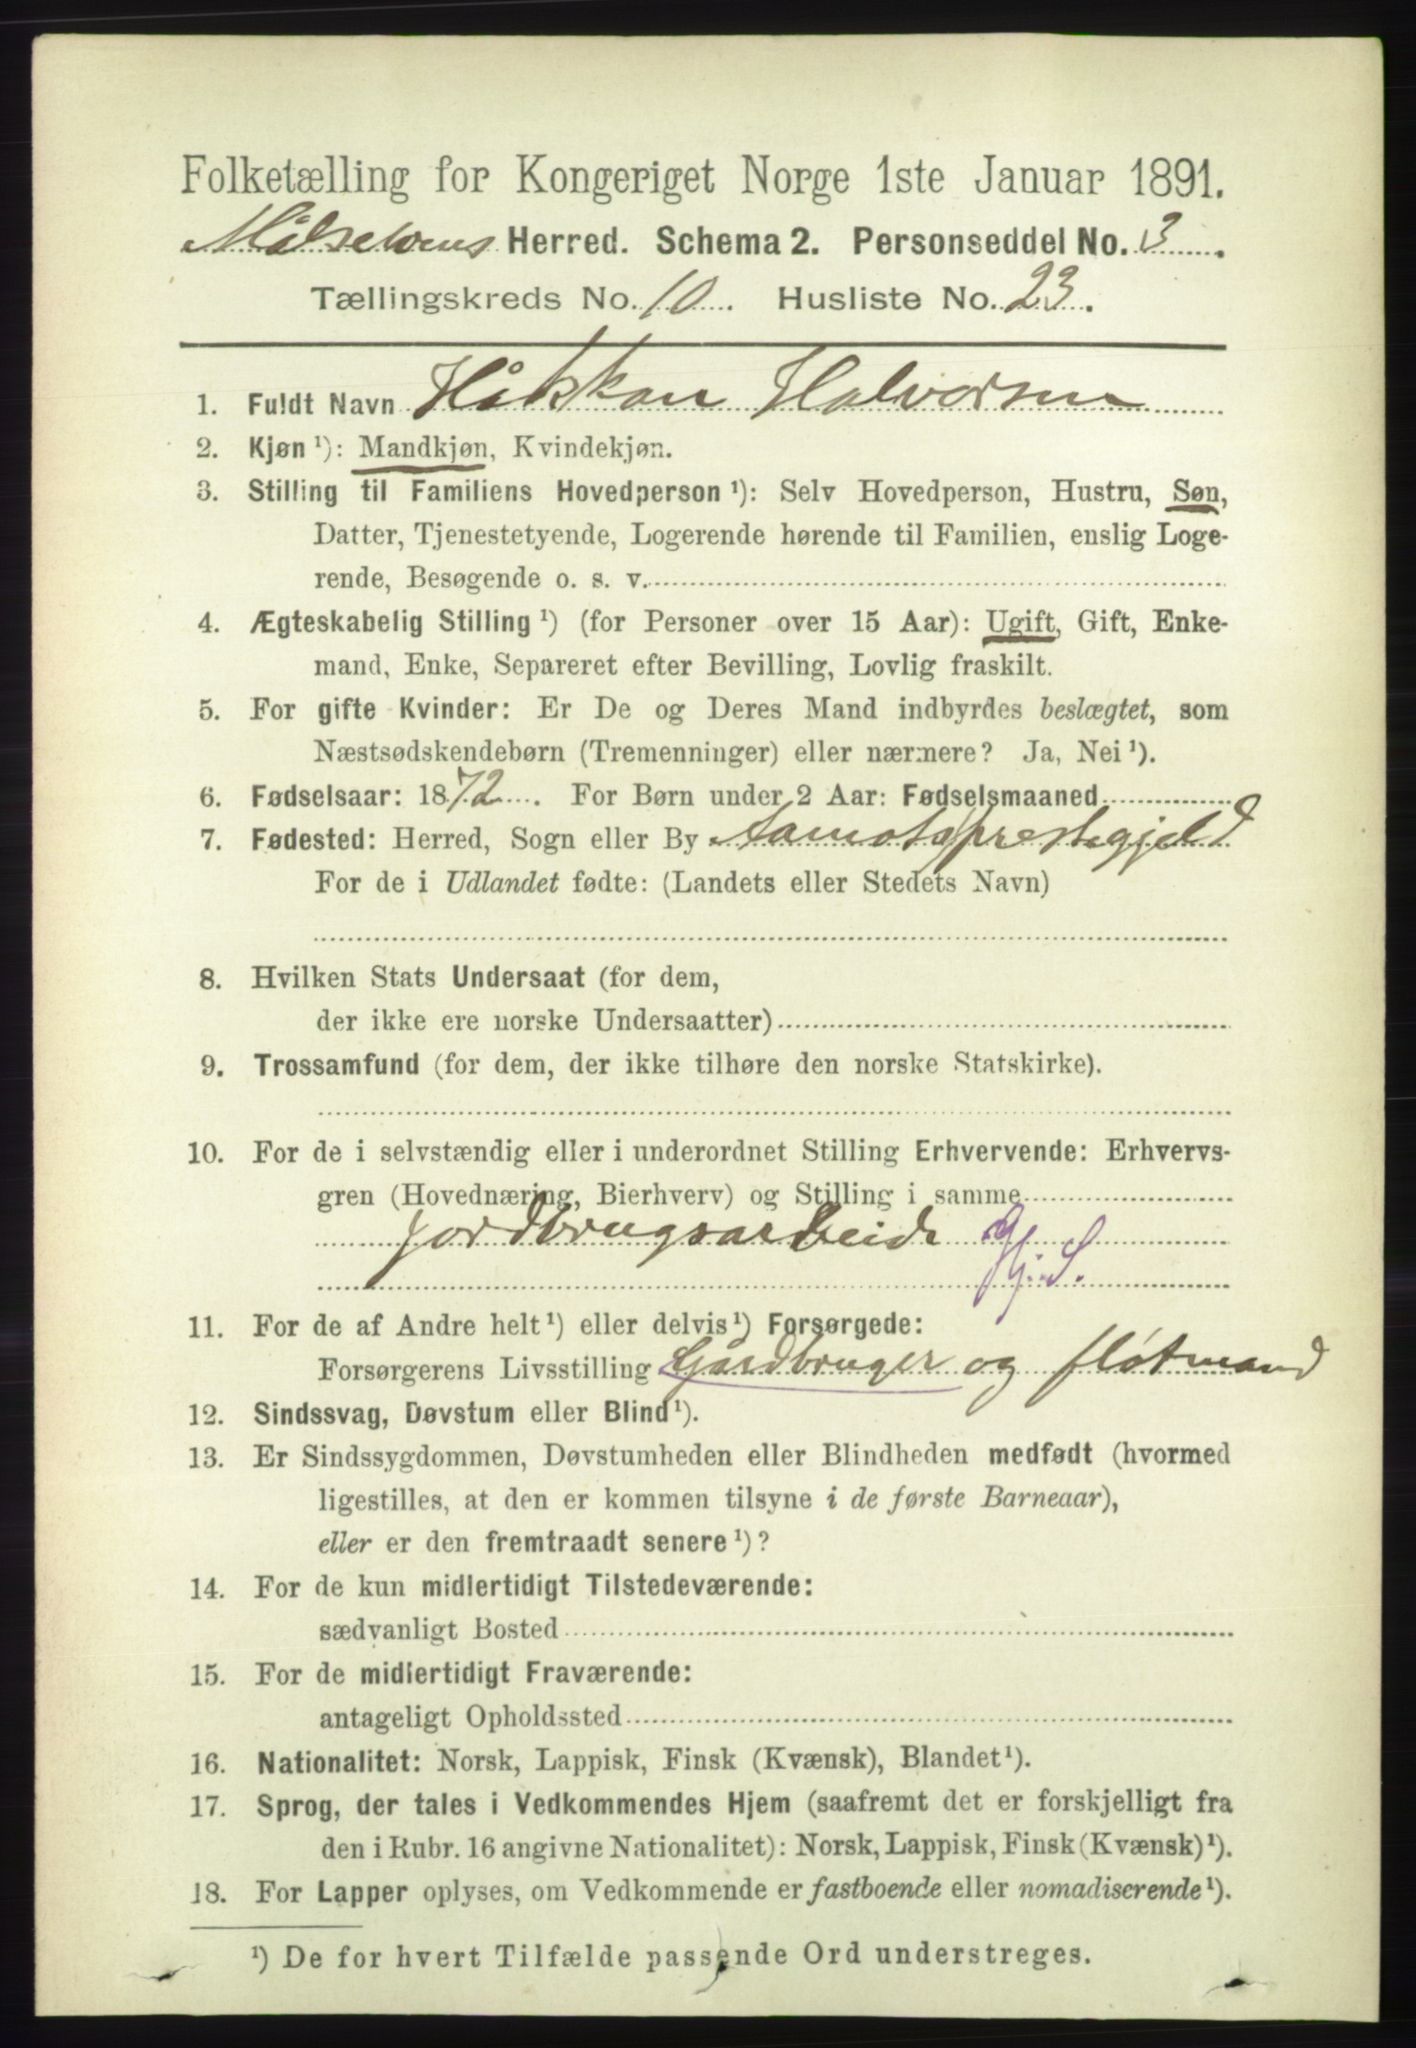 Folketælling for Kongeriget Norge 1ste Januar 1891.
Målselvens Herred. Schema 2. Personseddel No. 3.
Tællingskreds No. 10. Husliste No. 23.
1. Fuldt Navn Håkkon Halvorsen
2. Kjøn¹): Mandkjøn, Kvindekjøn.
3. Stilling til Familiens Hovedperson¹): Selv Hovedperson, Hustru, Søn,
Datter, Tjenestetyende, Logerende hørende til Familien, enslig Loge-
rende, Besøgende o. s. v.
4. Ægteskabelig Stilling¹) (for Personer over 15 Aar): Ugift, Gift, Enke-
mand, Enke, Separeret efter Bevilling, Lovlig fraskilt.
5. For gifte Kvinder: Er De og Deres Mand indbyrdes beslægtet, som
Næstsødskendebørn (Tremenninger) eller nærmere? Ja, Nei¹).
6. Fødselsaar: 1872. For Børn under 2 Aar: Fødselsmaaned
7. Fødested: Herred, Sogn eller By Aamots præstegjeld
For de i Udlandet fødte: (Landets eller Stedets Navn)
8. Hvilken Stats Undersaat (for dem,
der ikke ere norske Undersaatter)
9. Trossamfund (for dem, der ikke tilhøre den norske Statskirke).
10. For de i selvstændig eller i underordnet Stilling Erhvervende: Erhvervs-
gren (Hovednæring, Bierhverv) og Stilling i samme
Jordbrugsarbeide Gj. S.
11. For de af Andre helt¹) eller delvis¹) Forsørgede:
Forsørgerens Livsstilling Gårdbruger og fløtmand
12. Sindssvag, Døvstum eller Blind¹).
13. Er Sindssygdommen, Døvstumheden eller Blindheden medfødt (hvormed
ligestilles, at den er kommen tilsyne i de første Barneaar),
eller er den fremtraadt senere¹)?
14. For de kun midlertidigt Tilstedeværende:
sædvanligt Bosted
15. For de midlertidigt Fraværende:
antageligt Opholdssted
16. Nationalitet: Norsk, Lappisk, Finsk (Kvænsk), Blandet¹).
17. Sprog, der tales i Vedkommendes Hjem (saafremt det er forskjelligt fra
den i Rubr. 16 angivne Nationalitet): Norsk, Lappisk, Finsk (Kvænsk)¹).
18. For Lapper oplyses, om Vedkommende er fastboende eller nomadiserende¹).
¹) De for hvert Tilfælde passende Ord understreges.